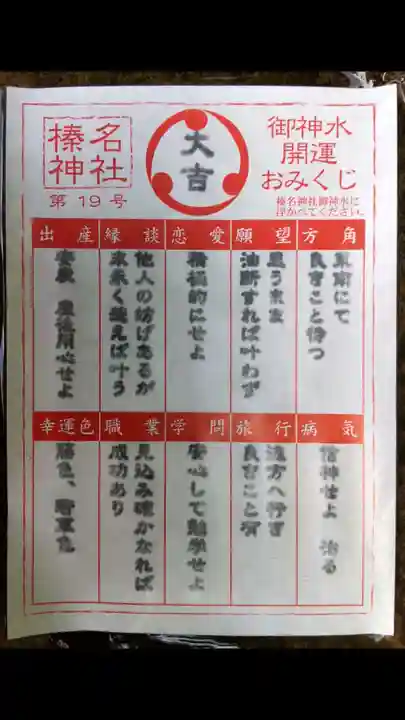 御神水
開運
おみくじ
榛名神社御神水に
浮かべてください。
大吉
榛名
神社
第19号
方角
東南にて
良きこと待つ
願望
思うまま
油断すれば叶わず
恋愛
積極的にせよ
縁談
他人の妨げあるが
末永く想えば叶う
出産
安産 産後用心せよ
病気
信神せよ 治る
旅行
遠方へ行き
良きこと有
学問
安心して勉学せよ
職業
見込み確かなれば
成功あり
幸運色